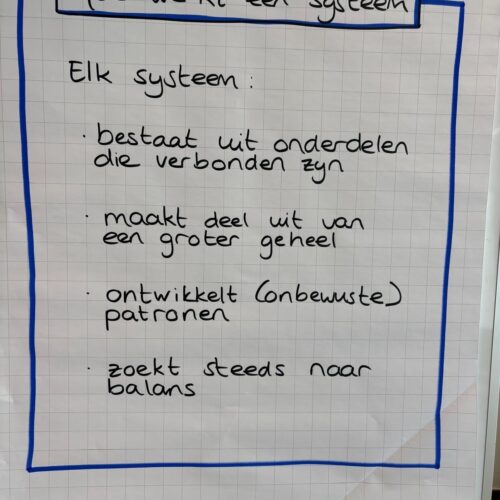 een systeem
Elk systeem :
· bestaat uit onderdelen
die verbonden zyn
· maakt deel uit van
een groter geheel
· ontwikkelt (onbewuste)
patronen
· zoekt steeds naar
balans